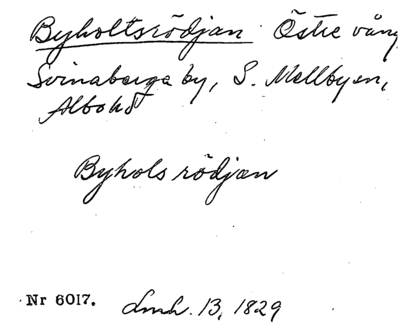 Byholtsrödjan Östre vång
Svinaberga by, S. Mellby sn,
Albo hd
Byhols rödjan
Nr 6017. Lmh. B, 1829